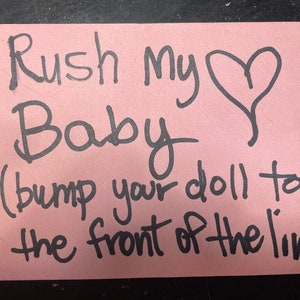 Rush My
Baby
(bump your doll to
the front of the lin